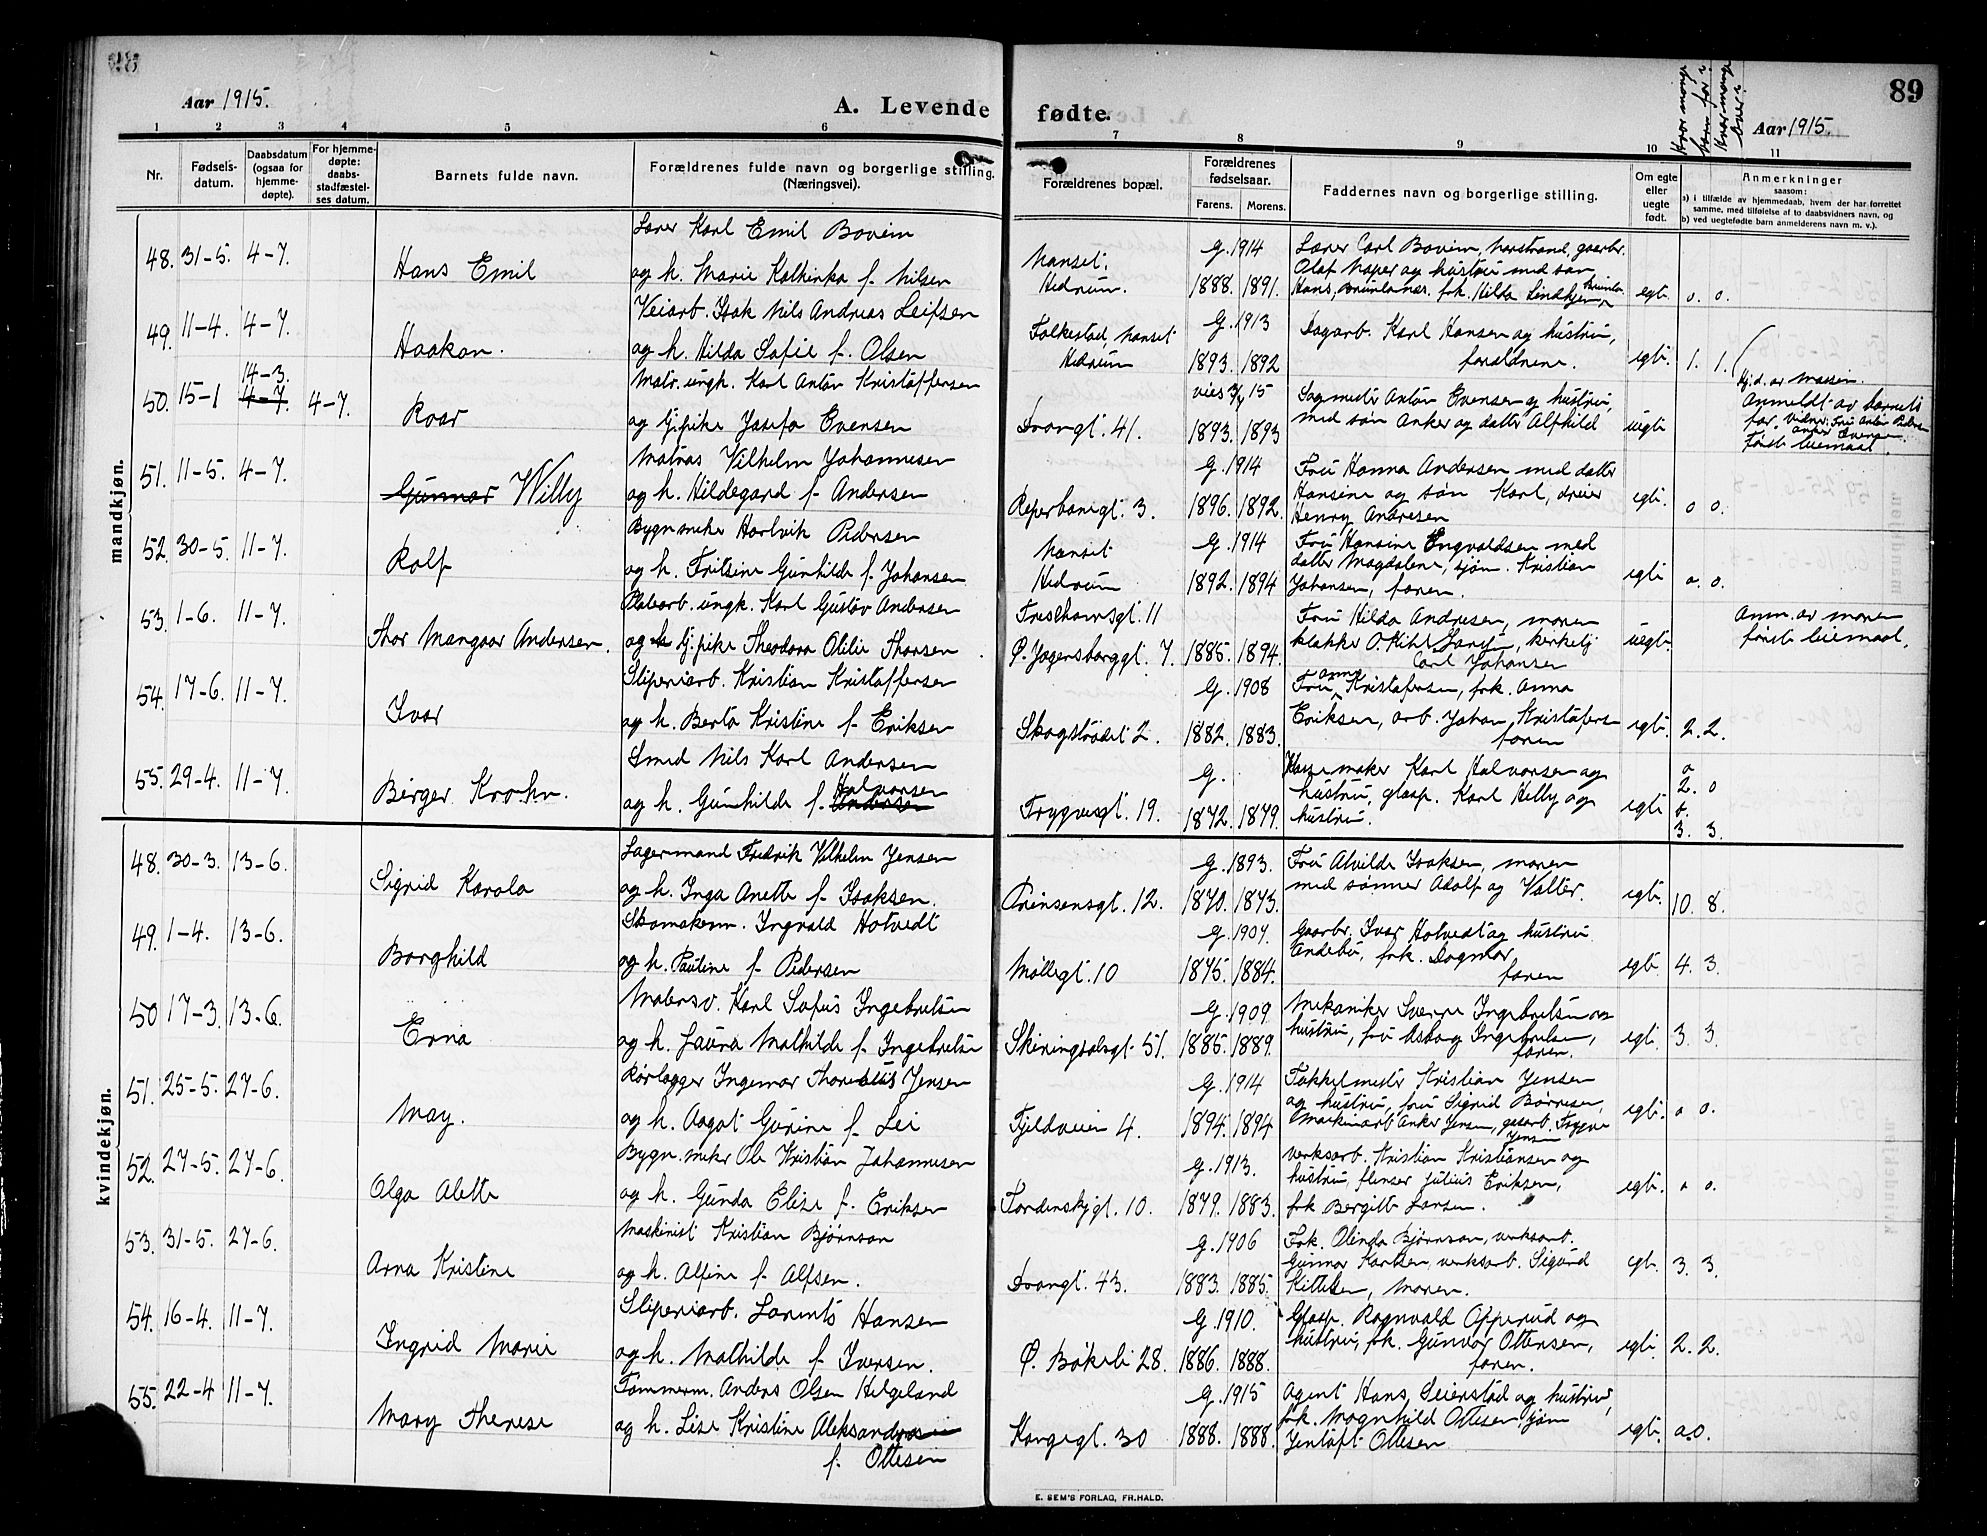 Aar 1915.
A. Levende
1 2 3 4 5 6
Nr.
Fødsels-
datum.
Daabsdatum
(ogsaa for
hjemme-
døpte).
For hjemme-
døpte:
daabs-
stadfæstel-
ses datum.
Barnets fulde navn.
Forældrenes fulde navn og borgerlige stilling.
(Næringsvei).
mandkjøn.
Lærer Karl Emil Bovim
48. 31-5. 4-7.
Hans Emil og h. Marie Kathinka f. Nilsen
Veiarb. Isak Nils Andreas Leifsen
49. 11-4. 4-7.
Haakon. og h. Hilda Sofie f. Olsen
14-3.
Matr. ungk. Karl Anton Kristoffersen
50. 15-1 4-7. 4-7.
Roar og Gj. pike Josefa Evensen
Matros Vilhelm Johannesen
51. 11-5. 4-7.
Gunnar Willy og h. Hildegard f. Andersen
Bygn. snekr Hartvik Pedersen
52. 30-5. 11-7.
Rolf og h. Fritsine Gunhilde f. Johansen
Platearb. ungk. Karl Gustav Andersen
53. 1-6. 11-7.
Thor Mangaar Andersen. og Gj. pike Theodora Otilie Thorsen
Sliperiarb. Kristian Kristoffersen
54. 17-6. 11-7.
Ivar og h. Berta Kristine f. Eriksen
Smed Nils Karl Andersen
55. 29-4. 11-7.
Halvorsen
Birger Krohn. og h. Gunhilde f. Andersen
kvindekjøn.
Lagermand Fredrik Vilhelm Jensen
48. 30-3. 13-6.
Sigrid Karola og h. Inga Anette f. Isaksen.
Skomakerm. Ingvald Hotvedt
49. 1-4. 13-6.
Borghild og h. Pauline f. Pedersen
Malersv. Karl Sofus Ingebretsen
50 17-3. 13-6.
Erna og h. Laura Mathilde f. Ingebretsen
Rørlægger Ingemar Thorelius Jensen
51. 25-5. 27-6.
May. og h. Aagot Gurine f. Lei
Bygn. snekr Ole Kristian Johannesen
52. 27-5. 27-6.
Olga Alette og h. Gunda Elise f. Eriksen
Maskinist Kristian Bjørnson
53. 31-5. 27-6.
Arna Kristine og h. Alfine f. Alfsen.
Sliperiarb. Laurits Hansen
54. 16-4. 11-7.
Ingrid Marie og h. Mathilde f. Iversen.
Tømmerm. Anders Olsen Helgeland
55. 22-4 11-7.
Mary Therese og h. Lise Kristine Aleksandra
f. Ottesen
89
Hvor mange
barn før?
Hvor mange
lever?
fødte. Aar 1915.
7 8 9 10 11
Forældrenes bopæl.
Forældrenes
fødselsaar.
Farens. Morens.
Faddernes navn og borgerlige stilling.
Om egte
eller
uegte
født.
Anmerkninger
saasom:
a) i tilfælde av hjemmedaab, hvem der har forrettet
samme, med tilføielse af to daabsvidners navn, og
b) ved uegtefødte barn anmelderens navn m. v.).
G. 1914 Lærer Carl Bovim, Nærstrand, gaarbr.
Nanset. Olaf Naper og hustru med søn
Hedrum. 1888. 1891. Hans, Brunlanes, frk. Hilda Lindhjem egte. 0. 0.
G. 1913 Dagarb. Karl Hansen og hustru,
Falkestad, Nanset
Hedrum 1893. 1892 forældrene. egte. 1. 1.
Hj.d. av
vies 3/4 15 Sagmester Anton Evensen og hustru,
Anmeldt av barnets
far.
Drangt. 41. 1893. 1893 med søn Anker og datter Alfhild uegte
Første leiemaal.
G. 1914 Fru Hanna Andersen med datter
Reperbanegt. 3. 1896. 1892. Hansine og søn Karl, dreier egte. 0 0.
Henry Andresen
Nanset G. 1914 Fru Hansine Engvaldsen med
Hedrum 1892. 1894 datter Magdalene, sjøm. Kristian egte 0. 0.
Johansen, faren.
Treschowsgt. 11 Fru Hilda Andresen, moren Anm. av moren
Ø. Jegersborggt. 7. 1885. 1894. klokker O. Kihl Larsen, kirketj. uegte. første leiemaal.
Carl Johansen
G. 1908 Fru Anna Kristofersen, frk. Anna
Skogstrædet 2. 1882. 1883. Eriksen, arb. Johan Kristofersen egte. 2. 2.
faren
G. maker Karl Halvorsen og a
hustru, glasp. Karl Helly og 2. 0
Trygvesgt. 19. 1872. 1879. hustru. egte b.
3. 3.
G. 1893. Fru Alvilde Isaksen, moren
Prinsensgt. 12. 1870. 1873. med sønner Adolf og Valter. egte. 10. 8.
G. 1907. Gaarbr. Ivar Hotvedt og hustru
Møllegt. 10 1875. 1884. Andebu, frk. Dagmar egte. 4. 3.
faren
G. 1909. Mekaniker Sverre Ingebretsen og
Skiringsalsgt. 51. 1885. 1889. hustru, fru Asborg Ingebretsen, egte. 3. 3.
faren.
G. 1914 Fakkelmester Kristian Jensen
og hustru, fru Sigrid Børresen,
Fjeldveien 4. 1894. 1894 Maskinarb Anker Jensen, gasarb. Trygve egte. 0 0.
Jensen
G. 1913. Verksarb. Kristian Kristiansen og
hustru, flenser Julius Eriksen,
Tordenskj.gt. 10. 1879. 1883. frk Bergitte Larsen. egte. 0 0.
G. 1906 Frk. Olinda Bjørnson, verksarb.
Gunnar Karlsen, verksarb. Sigurd egte. 3. 3.
Drangt. 43. 1883. 1885. Kittelsen, Moren.
G. 1910. Glasp. Ragnvald Opperud og
Ø. Bøkeli 28. 1886. 1888. hustru, frk. Gunvor Ottersen, egte. 2. 2.
faren.
G. 1915 Agent Hans Seierstad og hustru,
frk. Magnhild Ottesen, sjøm
Kongegt. 30 1888. 1888. Jentoft Ottesen egte. 0.0.
E. SEM'S FORLAG, FR.HALD.